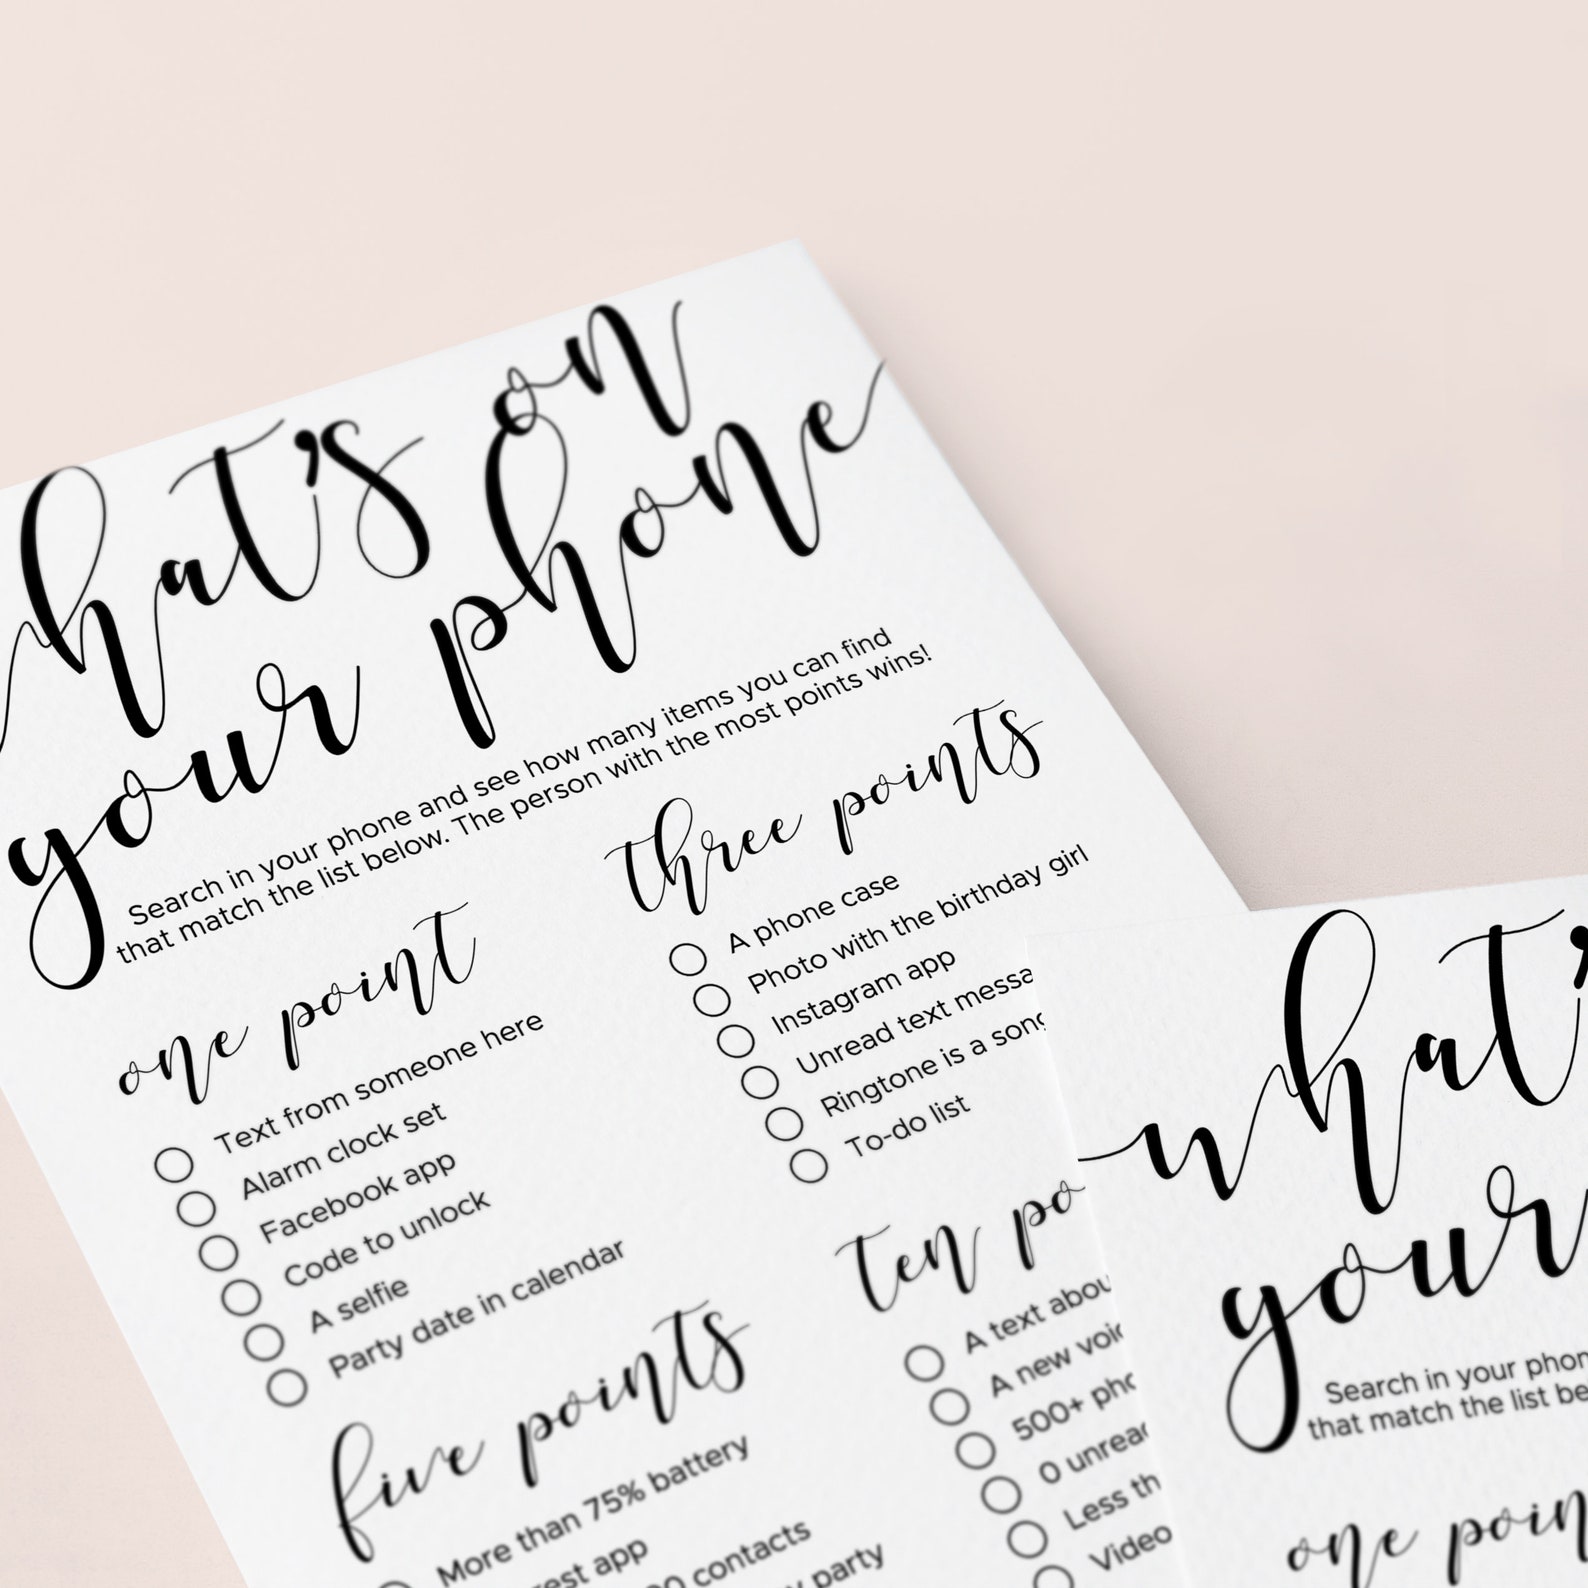 hat's on
your phone
Search in your phone and see how many items you can find
that match the list below. The person with the most points wins!
one point
Text from someone here
Alarm clock set
Facebook app
Code to unlock
A selfie
Party date in calendar
three points
A phone case
Photo with the birthday girl
Instagram app
Unread text messa
Ringtone is a song
To-do list
five points
More than 75% battery
est app
00 contacts
y party
ten po
A text abou
A new voic
500+ pho
0 unread
Less th
Video
what'
your
Search in your phon
that match the list be
one poin